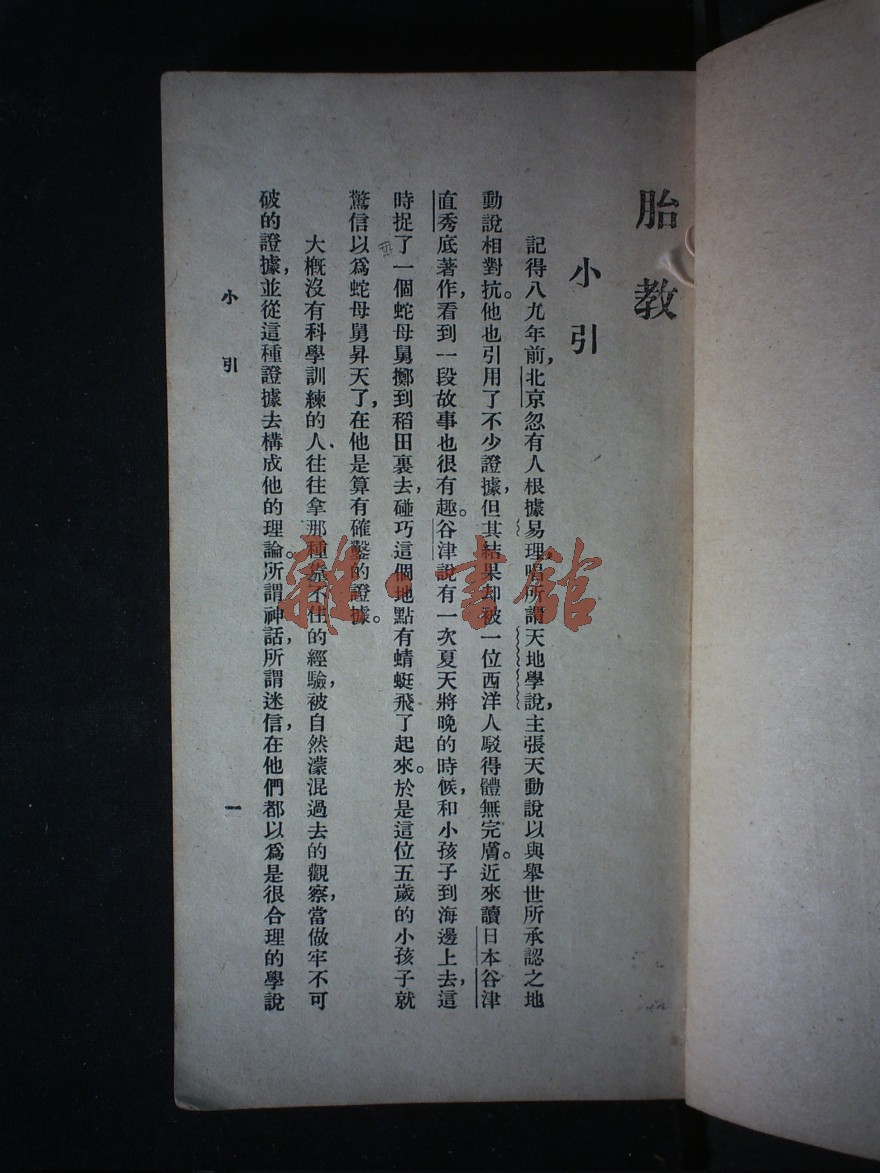 胎教
小引
記得八九年前，北京忽有人根據易理，唱所謂天地學說，主張天動說以與舉世所承認之地
動說相對抗。他也引用了不少證據，但其結果却被一位西洋人駁得體無完膚。近來讀日本谷津
直秀底著作，看到一段故事也很有趣。谷津說有一次夏天將晚的時候，和小孩子到海邊上去，這
時捉了一個蛇母舅擲到稻田裏去，碰巧這個地點有蜻蜓飛了起來。於是這位五歲的小孩子就
驚信以爲蛇母舅昇天了，在他是算有確鑿的證據。
大概沒有科學訓練的人、往往拿那種靠不住的經驗，被自然濛混過去的觀察，當做牢不可
破的證據，並從這種證據去構成他的理論。所謂神話，所謂迷信，在他們都以爲是很合理的學說
小引
一
雜·書館